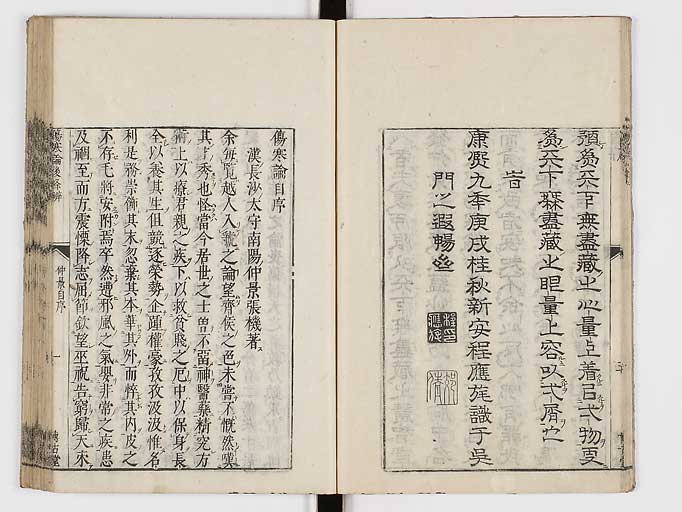 盡藏之心量上着
天下
盡藏之眼量上容以
旹
康熙九季庚戌桂秋新安程應旄識于吳
門之遐暢
傷寒論自序
漢長沙太守南陽仲景張機著
余每覽越人入虢之論望齊侯之色未嘗不慨然嘆
其才秀也怪當今居世之士曽不留神醫藥精究方
術上以療君親之疾下以救貧賤之厄中以保身長
全以養其生但競逐榮勢企踵權豪孜孜汲汲惟名
利是務崇飾其末忽棄其本華其外而悴其内皮之
不存毛將安附焉卒然遭邪風之氣嬰非常之疾患
及禍至而方震慄降志屈節欽望巫祝告窮歸天束
傷寒論後條辨
仲景自序
一